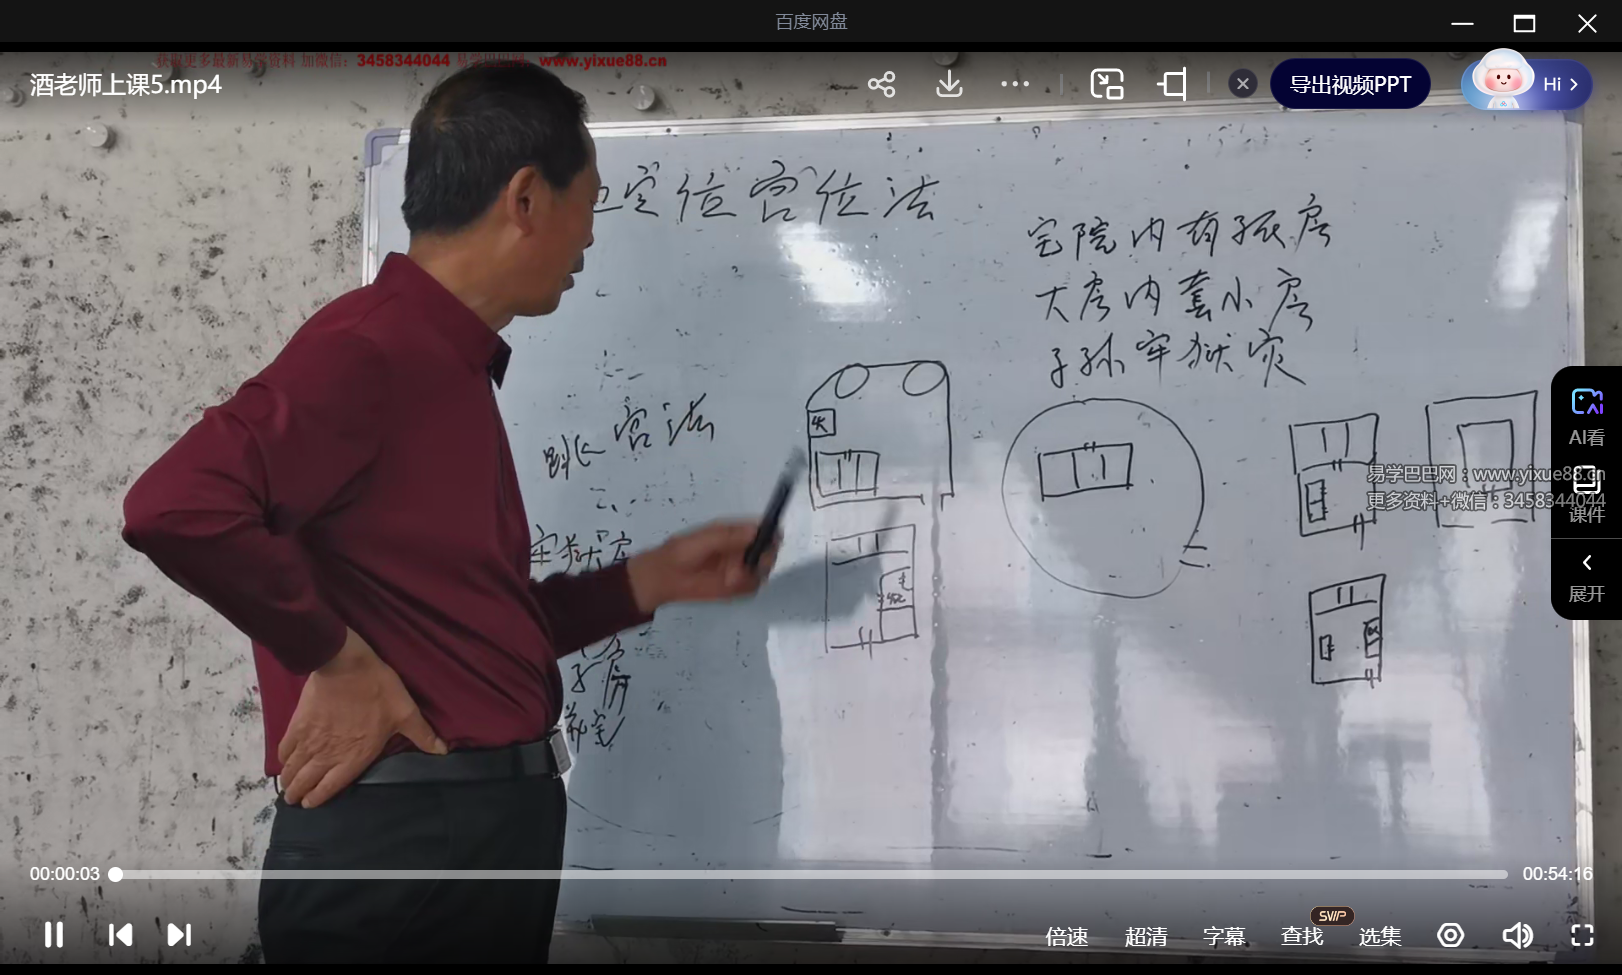 百度网盘
获取更多最新易学资料 加微信：3458344044 易学巴巴网：www.yixue88.cn
酒老师上课5.mp4
导出视频PPT
Hi
定位宫位法
宅院内有孤房
大房内套小房
子孙牢狱灾
跳宫法
AI看
易学巴巴网：www.yixue88.cn
更多资料+微信：3458344044
课件
展开
00:00:03
00:54:16
倍速
超清
字幕
SVIP
查找
选集